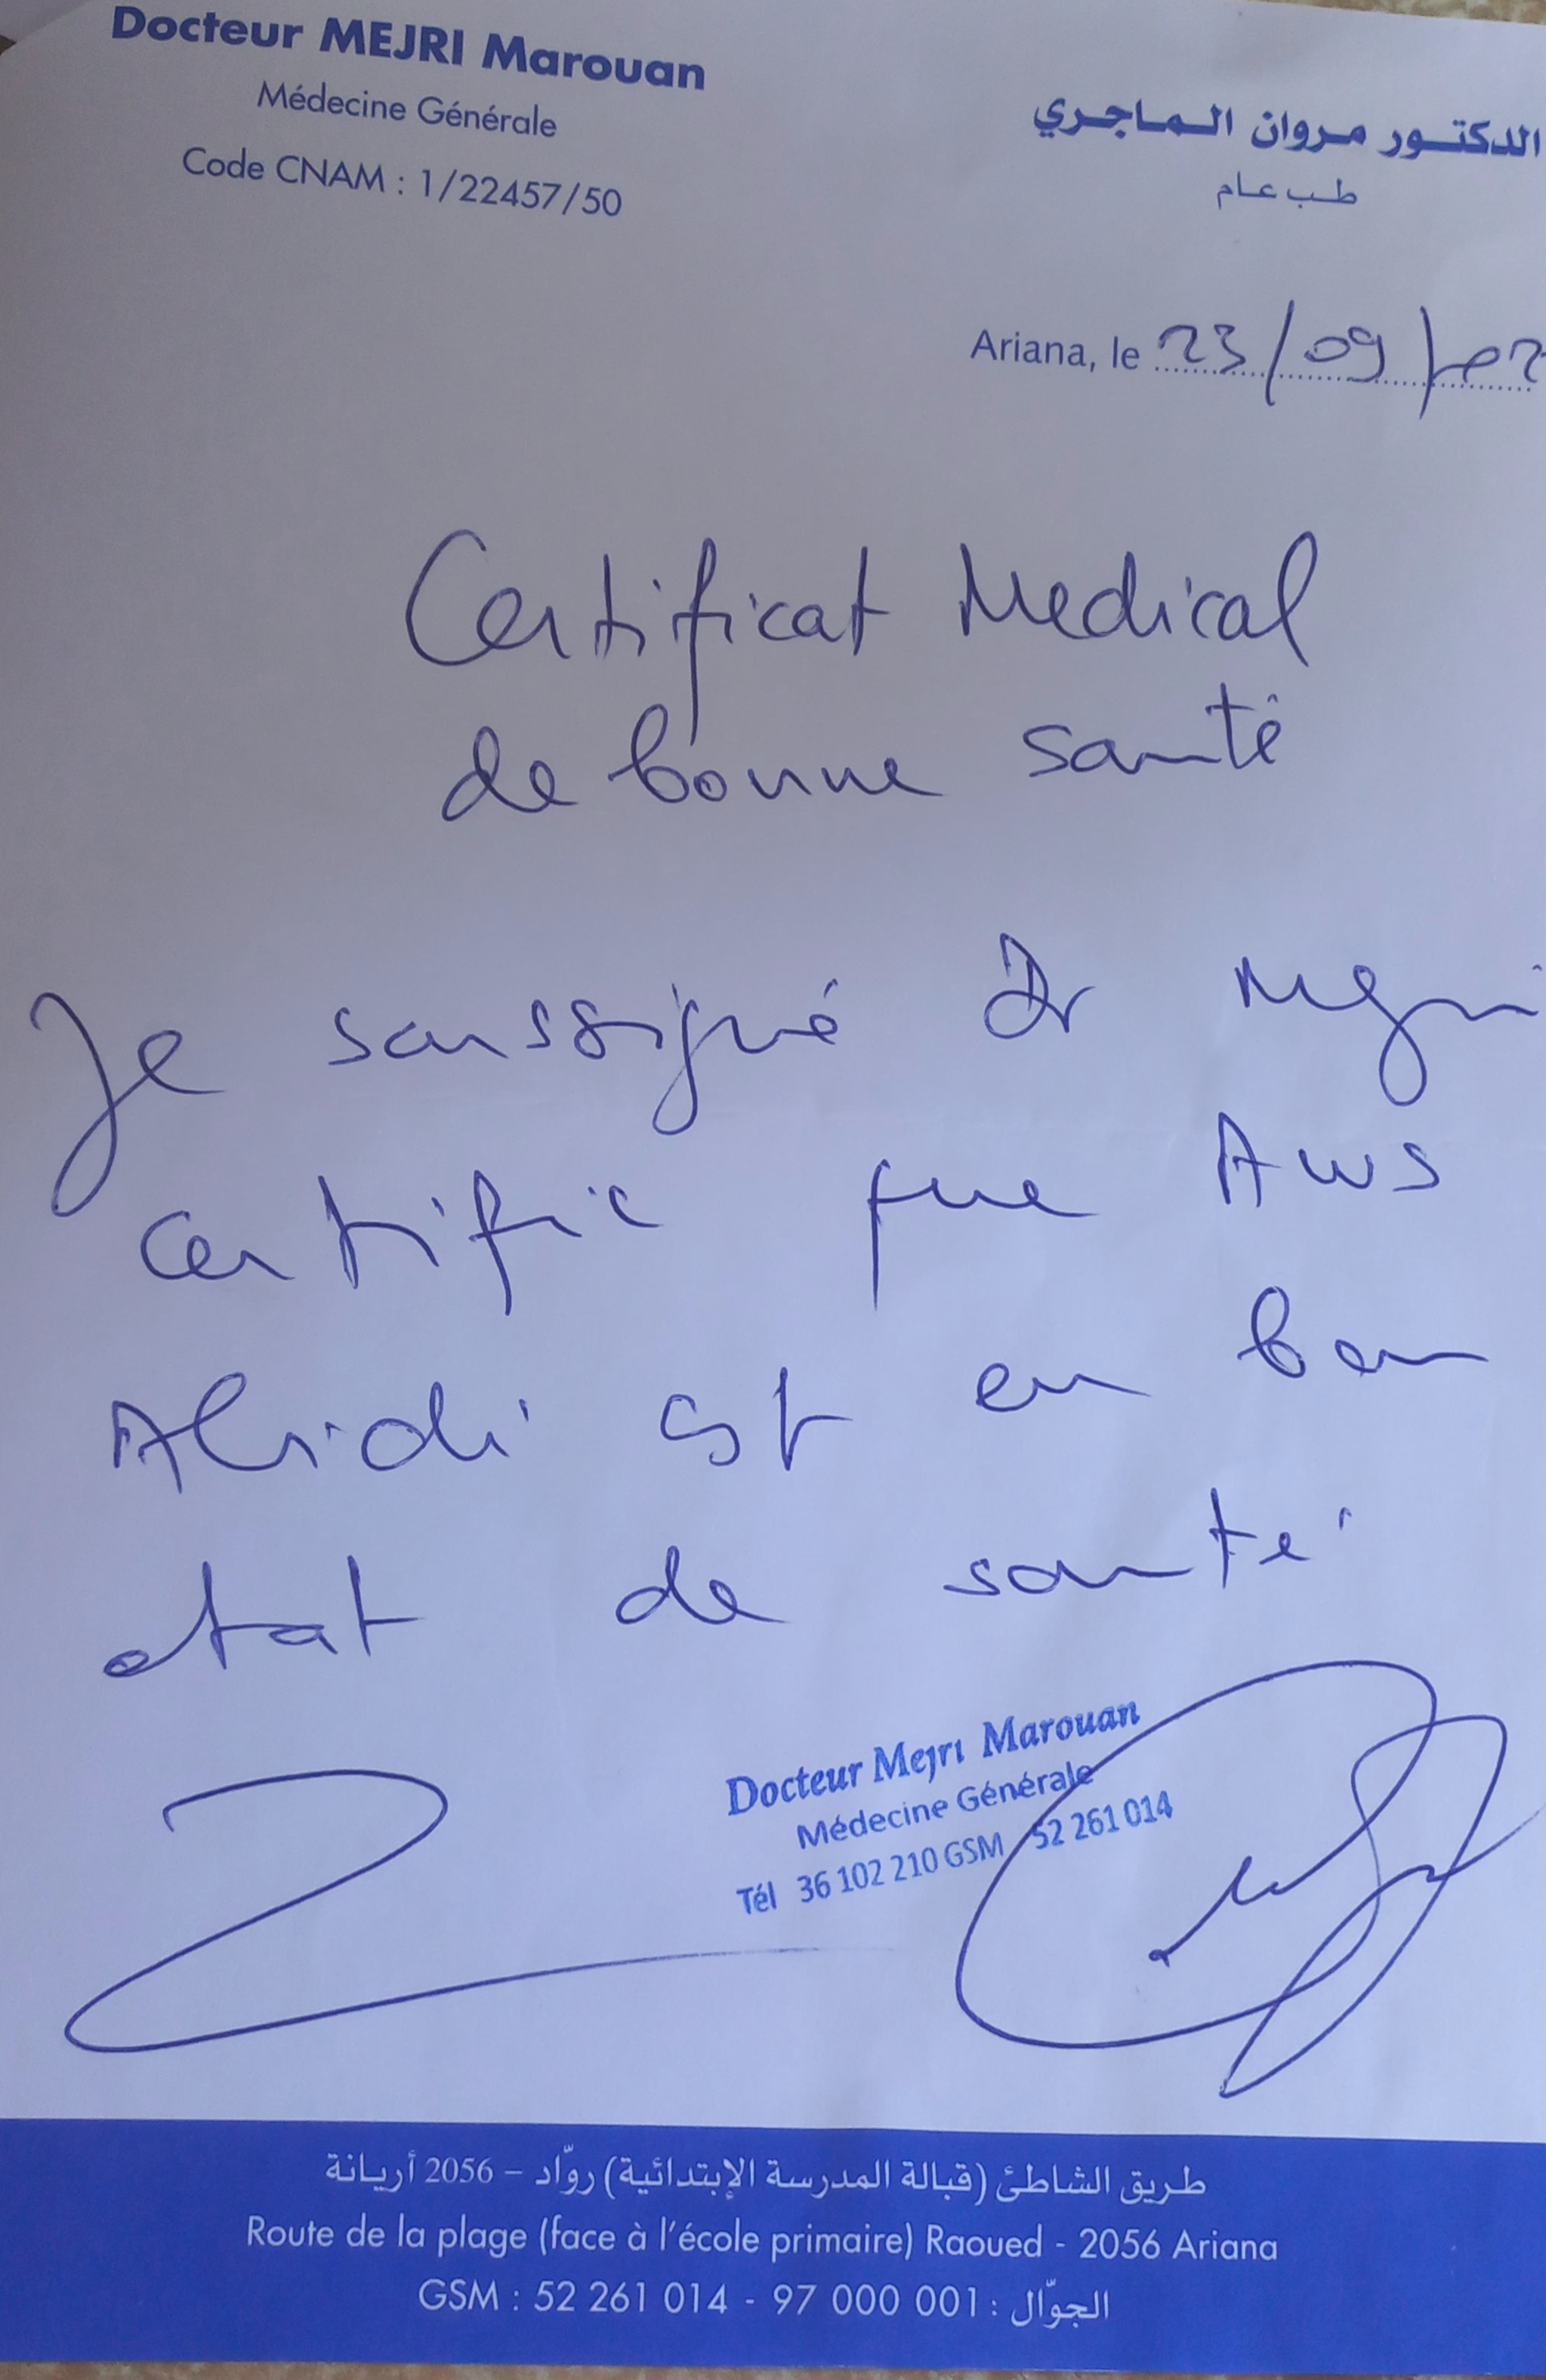 Docteur MEJRI Marouan
Médecine Générale
Code CNAM : 1/22457/50
الدكتور مروان الماجري
طب عام
Ariana, le 23/09/202
Certificat Medical
de bonne santé
Je soussigné Dr Mejri
certifie que Aws
Abidi est en bon
etat de santé
Docteur Mejri Marouan
Médecine Générale
Tél 36 102 210 GSM 52 261 014
طريق الشاطئ (قبالة المدرسة الإبتدائية) روّاد – 2056 أريانة
Route de la plage (face à l'école primaire) Raoued - 2056 Ariana
GSM : 52 261 014 - 97 000 001 : الجوّال